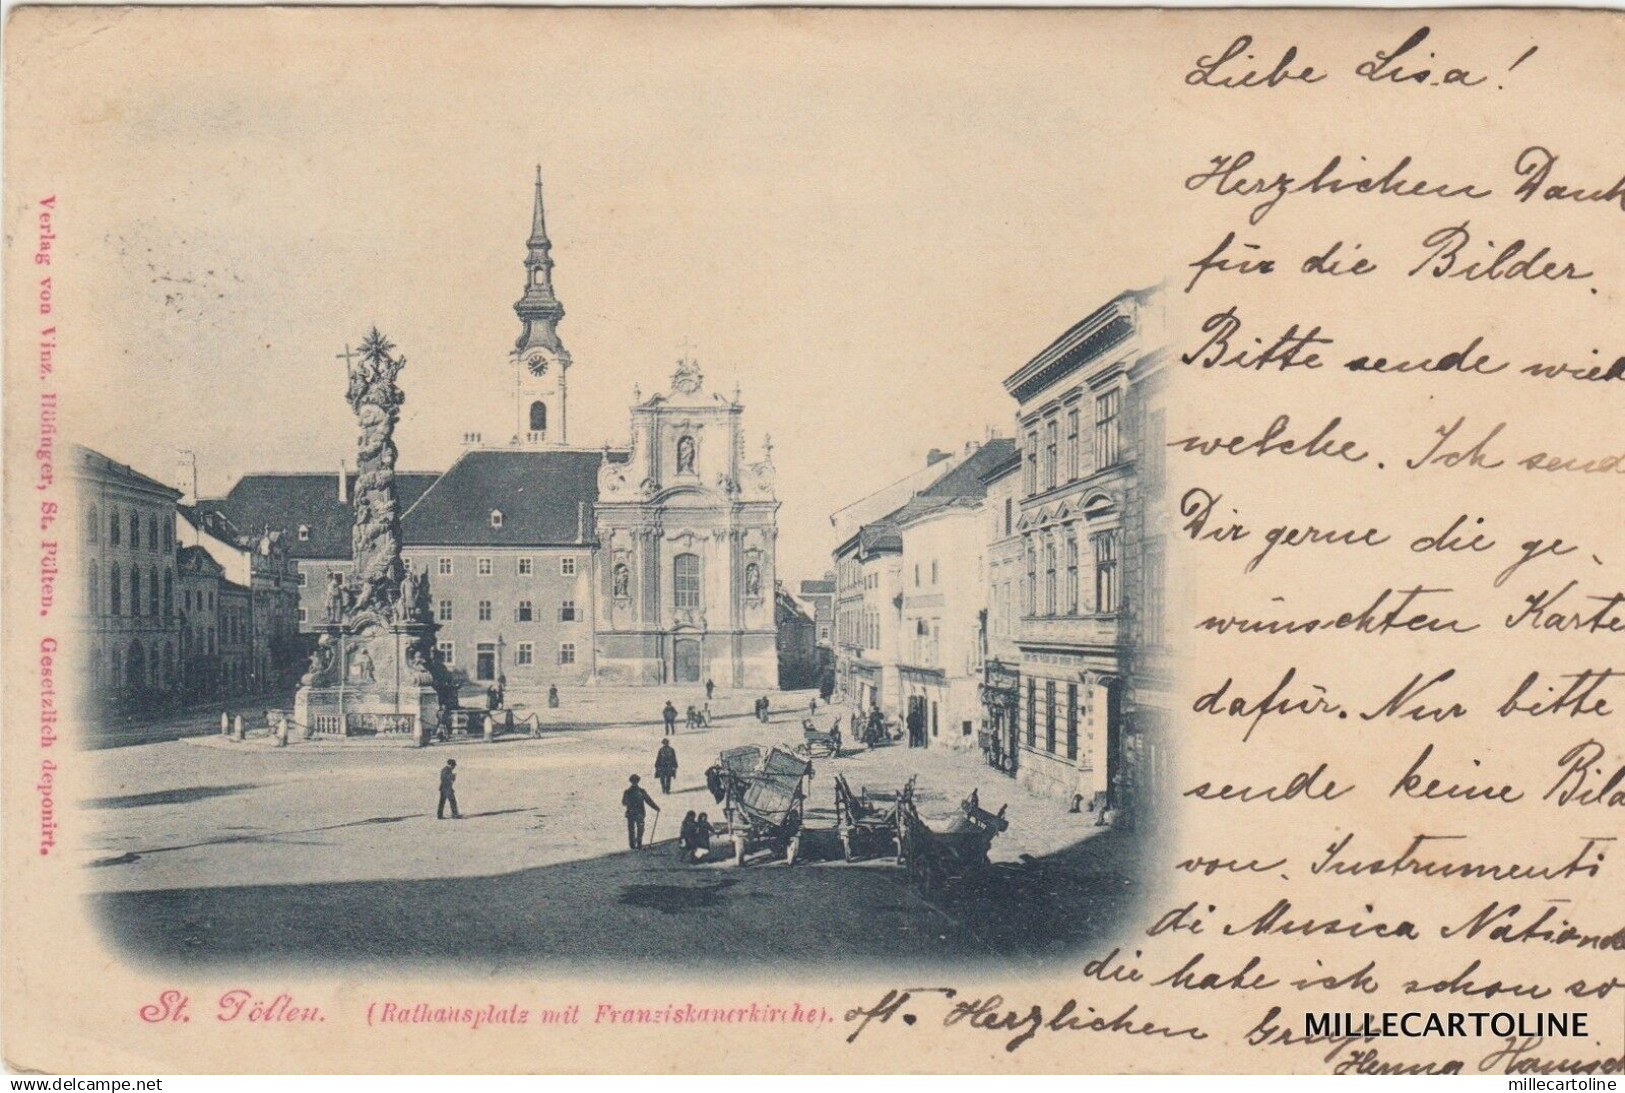 Liebe Lisa!
Herzlichen Dank
für die Bilder.
Bitte sende wied
welche. Ich send
Dir gerne die ge-
wünschten Karte
dafür. Nur bitte
sende keine Bild
von Instrumenti
di Musica Nationa
die habe ich schon so
oft. Herzlichen Gruß
Henna Hanisch
Verlag von Vinz. Höfinger, St. Pölten. Gesetzlich deponirt.
St. Pölten. (Rathausplatz mit Franziskanerkirche).
MILLECARTOLINE
https://www.delcampe.net
millecartoline